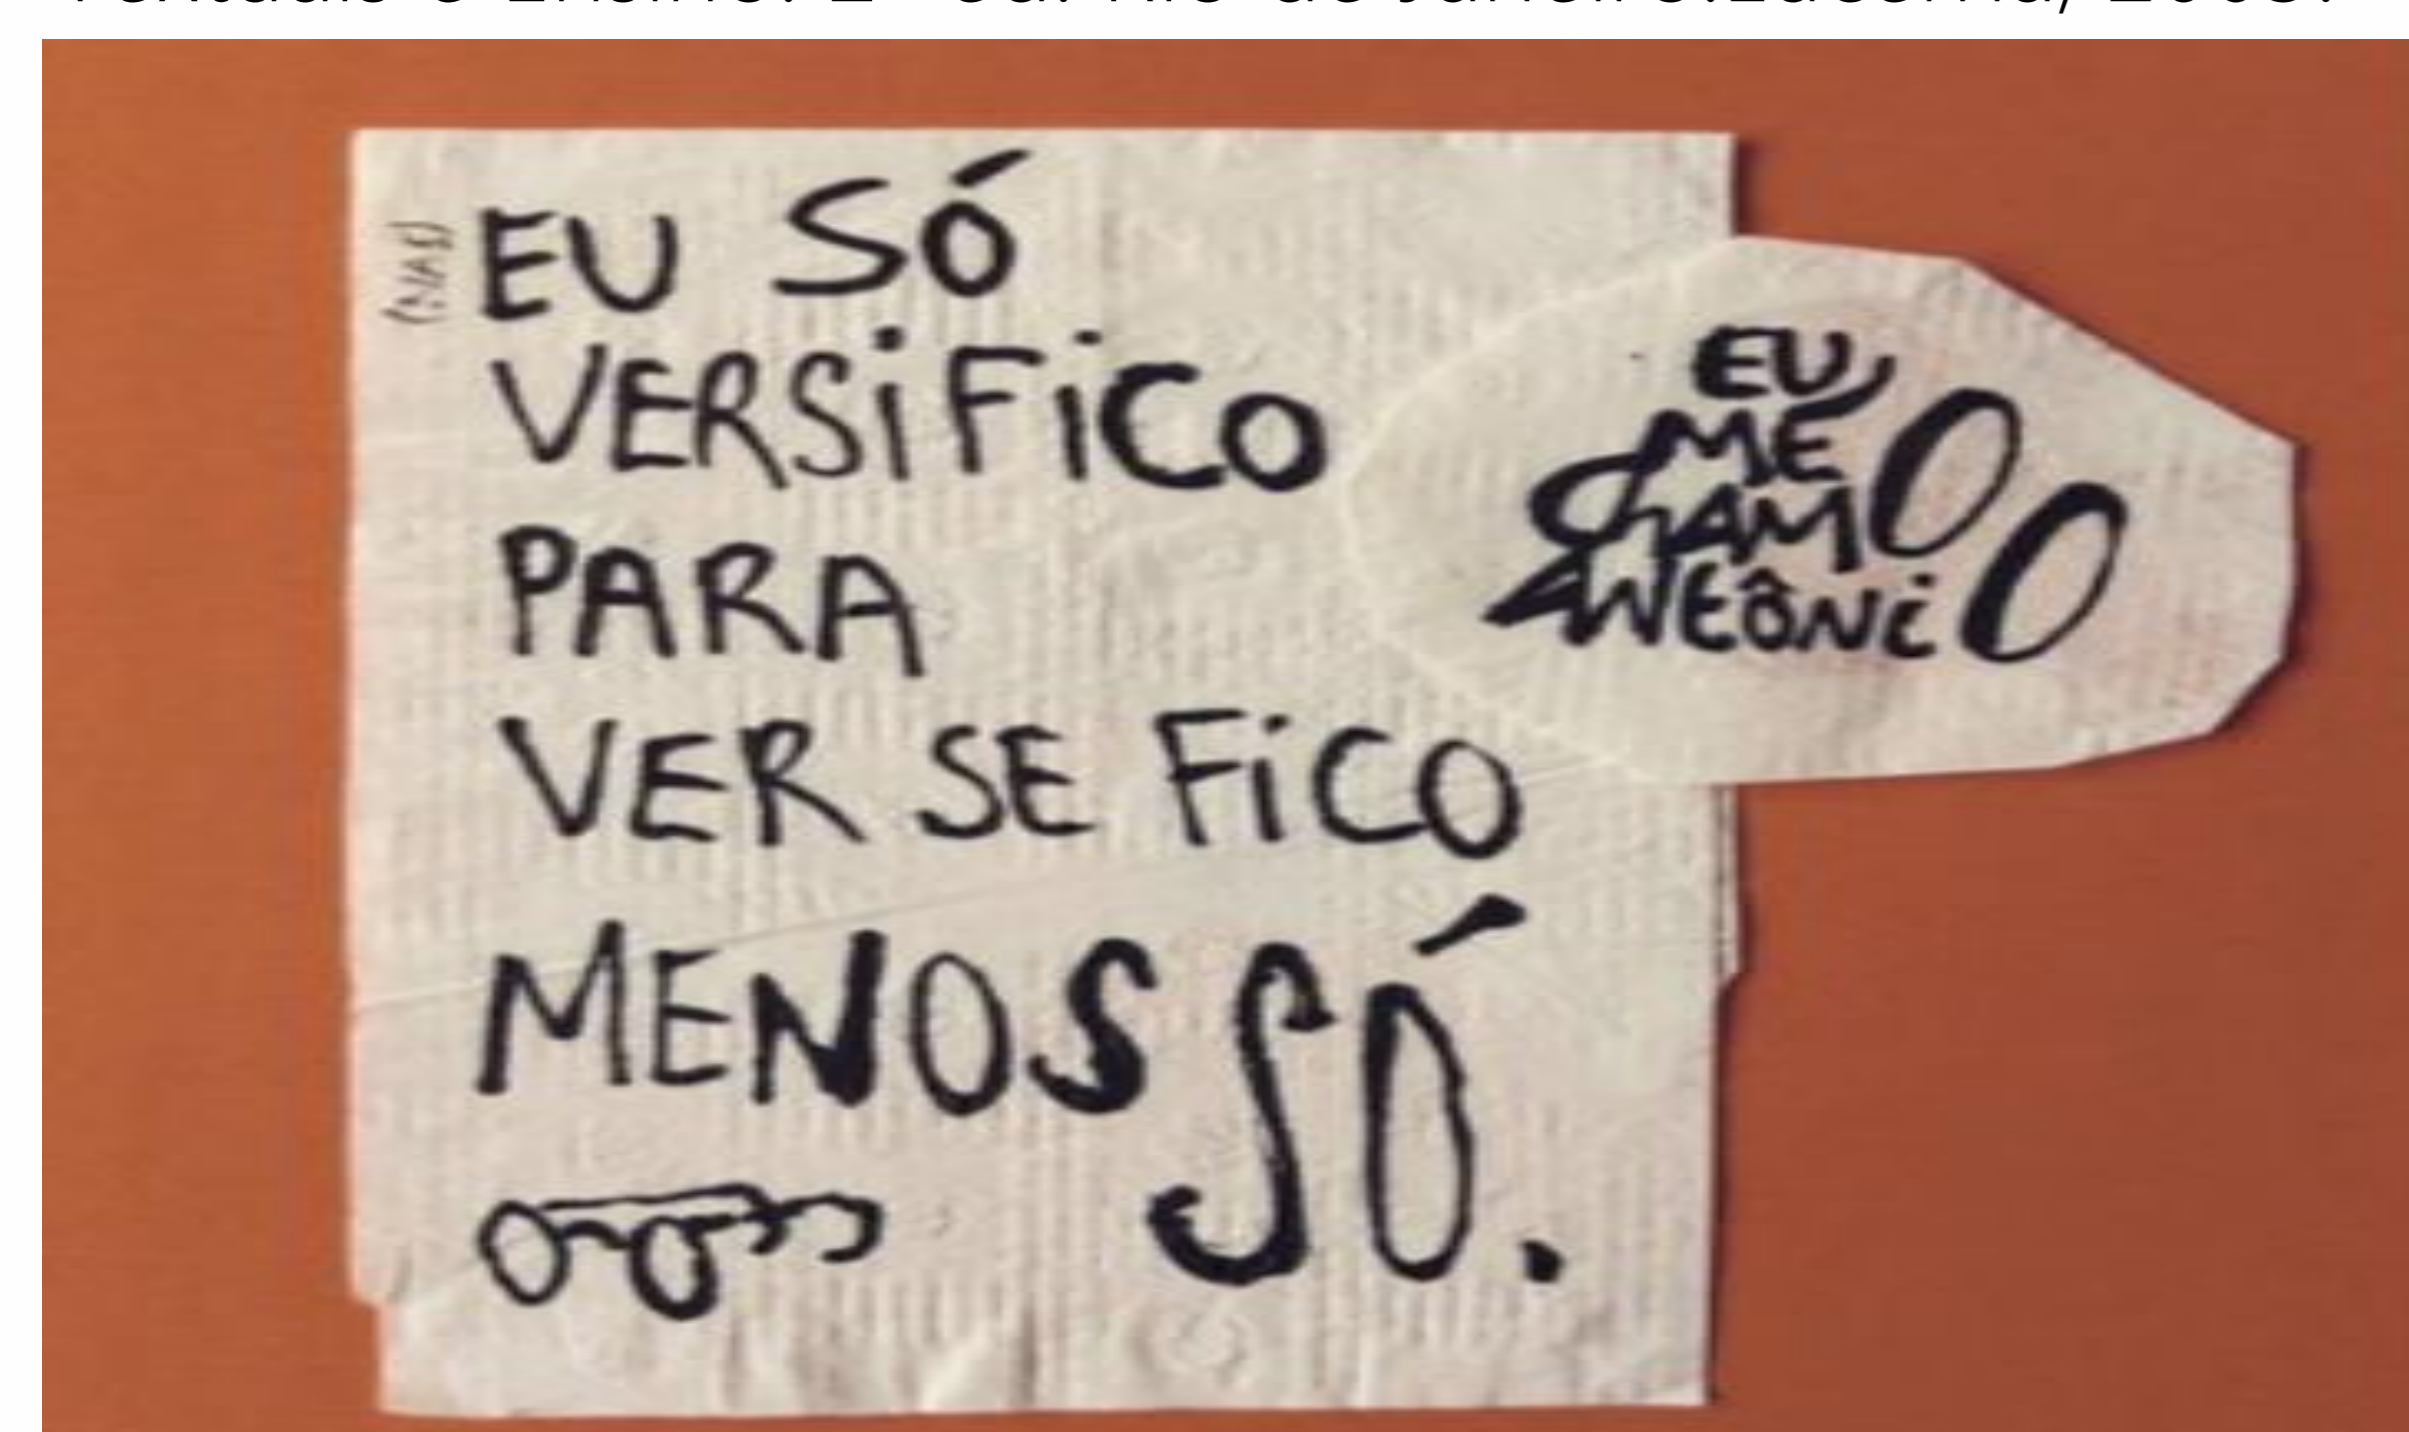 EU SÓ
VERSiFiCO
PARA
VER SE FiCO
MENOS SÓ.
EU
ME
ChAMO
ANtÔNiO